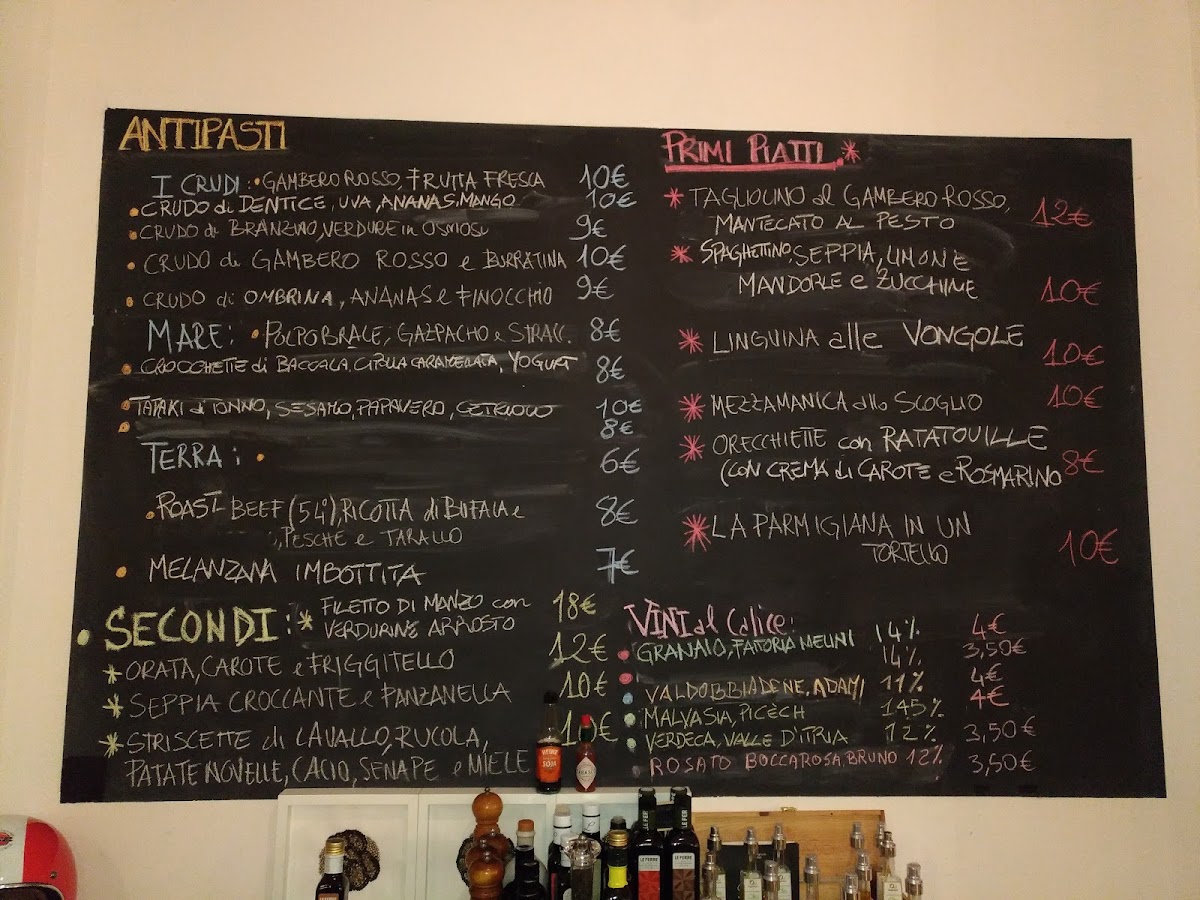 ANTIPASTI
I CRUDI: GAMBERO ROSSO, FRUTTA FRESCA 10€
CRUDO di DENTICE, UVA, ANANAS, MANGO 10€
CRUDO di BRANZINO, VERDURE in OSMOSI 9€
CRUDO di GAMBERO ROSSO e BURRATINA 10€
CRUDO di OMBRINA, ANANAS e FINOCCHIO 9€
MARE: POLPO BRACE, GAZPACHO e STRACC. 8€
CROCCHETTE di BACCALA, CIPOLLA CARAMELLATA, YOGURT 8€
TATAKI di TONNO, SESAMO, PAPAVERO, CETRIOLO 10€
8€
TERRA: 6€
ROAST BEEF (54°), RICOTTA di BUFALA e 8€
, PESCHE e TARALLO
MELANZANA IMBOTTITA 7€
SECONDI: * FILETTO DI MANZO con 18€
VERDURINE ARROSTO
* ORATA, CAROTE e FRIGGITELLO 12€
* SEPPIA CROCCANTE e PANZANELLA 10€
* STRISCETTE di CAVALLO, RUCOLA, 10€
PATATE NOVELLE, CACIO, SENAPE e MIELE
PRIMI PIATTI *
* TAGLIOLINO al GAMBERO ROSSO,
MANTECATO AL PESTO 12€
* SPAGHETTINO, SEPPIA, LIMONE
MANDORLE e ZUCCHINE 10€
* LINGUINA alle VONGOLE 10€
* MEZZAMANICA allo SCOGLIO 10€
* ORECCHIETTE con RATATOUILLE
(CON CREMA di CAROTE e ROSMARINO 8€
* LA PARMIGIANA IN UN
TORTELLO 10€
VINI al Calice:
GRANAIO, FATTORIA MELINI 14% 4€
14% 3,50€
VALDOBBIADENE, ADAMI 11% 4€
MALVASIA, PICÈCH 145% 4€
VERDECA, VALLE D'ITRIA 12% 3,50€
ROSATO BOCCAROSA, BRUNO 12% 3,50€
HEINZ
SOJA
LE FERRE
LE FERRE